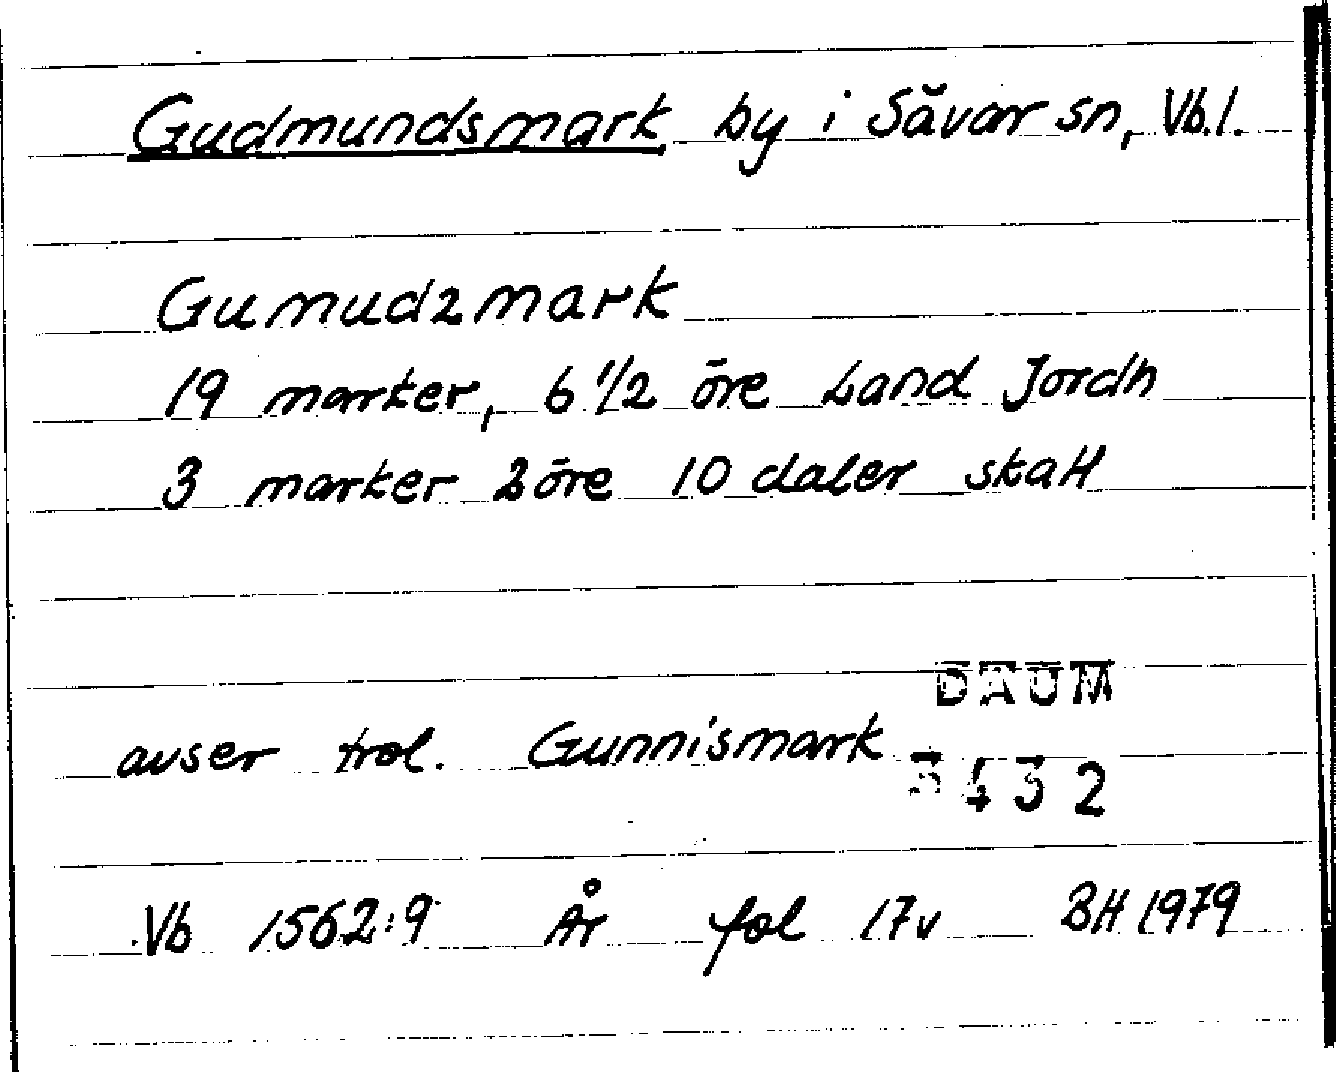 Gudmundsmark by i Sävar sn, Vb.l.
Gumudzmark
19 marker, 6 1/2 öre Land Jordh
3 marker 2 öre 10 daler skatt
DAUM
avser trol. Gunnismark
5432
Vb 1562:9 År fol 17v BH 1979